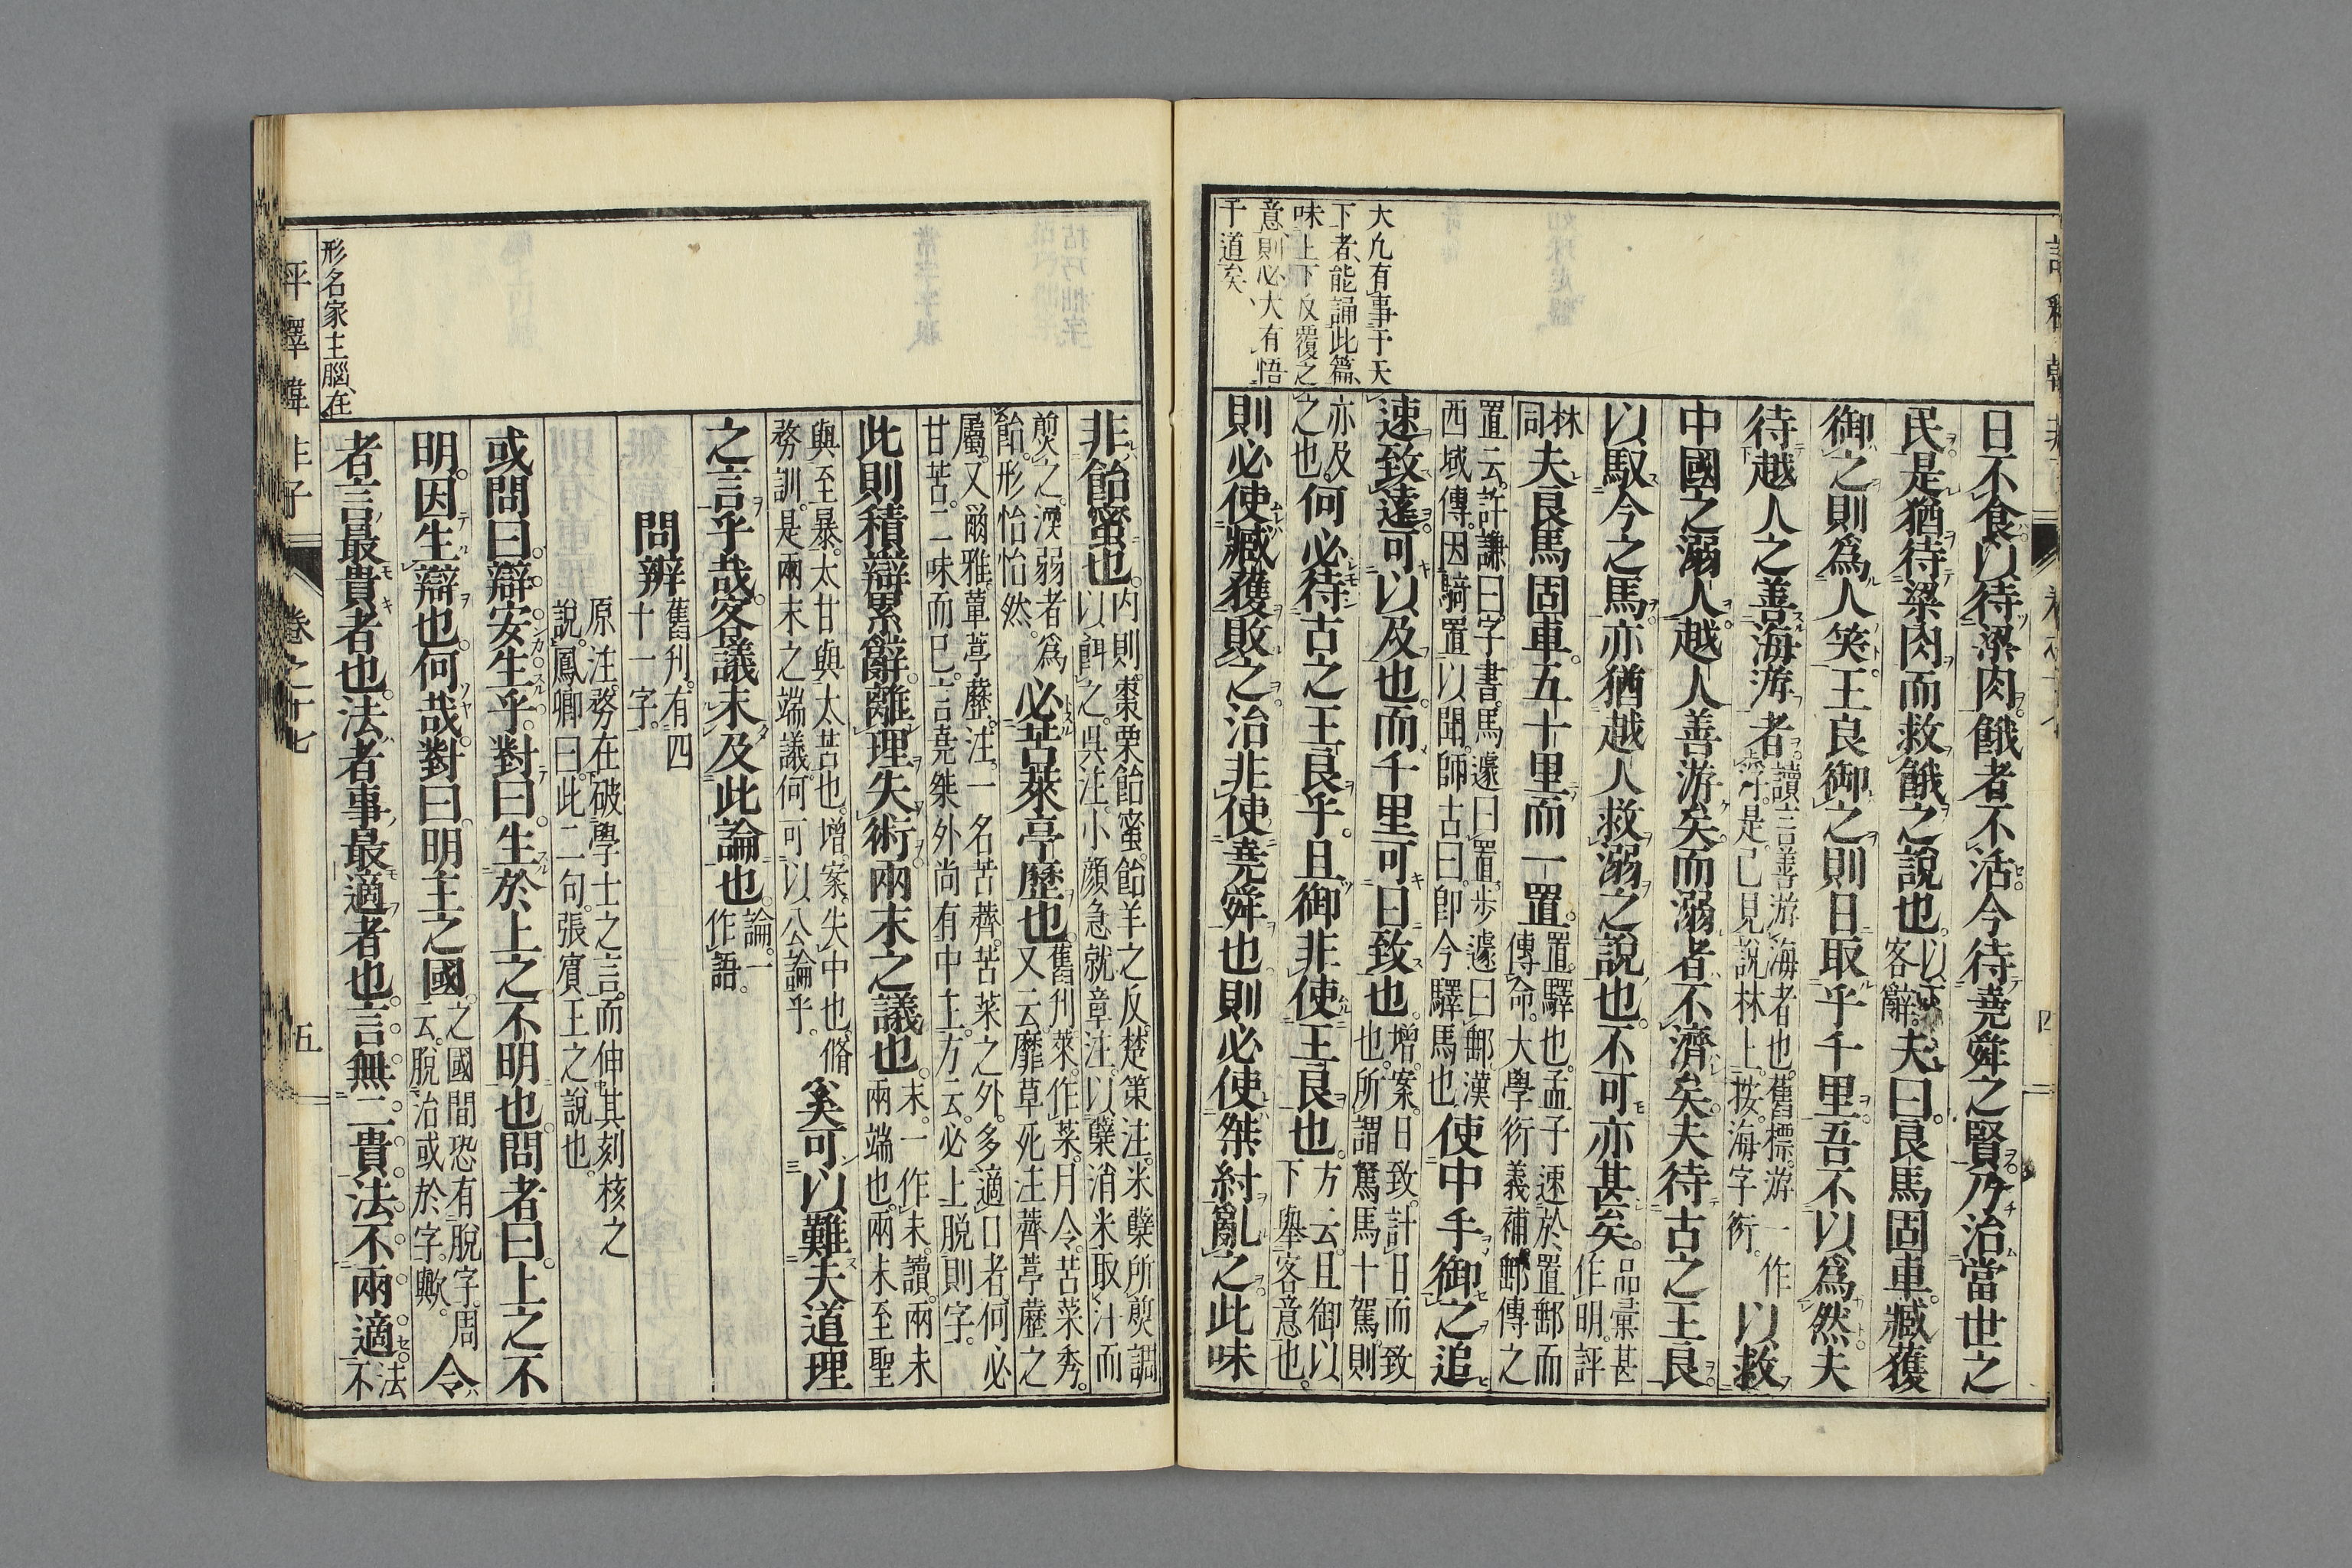 日不食以待粱肉餓者不活今待堯舜之賢乃治當世之
民是猶待粱肉而救餓之說也以下客辭夫曰良馬固車臧獲
御之則爲人笑王良御之則日取乎千里吾不以爲然夫
待越人之善海游者讀言善游海者也舊標游一作
衍是已見說林上按海字衍以救
中國之溺人越人善游矣而溺者不濟矣夫待古之王良
以馭今之馬亦猶越人救溺之說也不可亦甚矣品彙甚
作明評
林同夫良馬固車五十里而一置置驛也孟子速於置郵而
傳命大學衍義補郵傳之
置云許謙曰字書馬遞曰置步遞曰郵漢
西域傳因騎置以聞師古曰卽今驛馬也使中手御之追
速致遠可以及也而千里可日致也增案日致計日而致
也所謂駑馬十駕則
亦及之也何必待古之王良乎且御非使王良也方云且御以
下擧客意也
則必使臧獲敗之治非使堯舜也則必使桀紂亂之此味
大凢有事于天
下者能誦此篇
味上下反覆之
意則必大有悟
于道矣
四
非飴蜜也內則棗栗飴蜜飴羊之反楚策注米糵所煎調
以餌之吳注小顏急就章注以糵消米取汁而
煎之渜弱者爲
飴形怡怡然必苦萊亭歷也舊刋萊作菜月令苦菜秀
又云靡草死注薺葶藶之
屬又爾雅蕇葶藶注一名苦薺苦菜之外多適口者何必
甘苦二味而已言堯桀外尚有中主方云必上脫則字
此則積辯累辭離理失術兩末之議也末一作未讀兩未
兩端也兩末至聖
與至暴太甘與太苦也增案失中也脩
務訓是兩末之端議何可以公論乎奚可以難夫道理
之言乎哉客議未及此論也論一
作語
問辨舊刋有四
十一字
原注務在破學士之言而伸其刻核之
說鳳卿曰此二句張賓王之說也
或問曰辯安生乎對曰生於上之不明也問者曰上之不
明因生辯也何哉對曰明主之國之國間恐有脫字周
云脫治或於字歟令
者言最貴者也法者事最適者也言無二貴法不兩適法
不
形名家主腦在
評釋韓非子
卷之十七
五